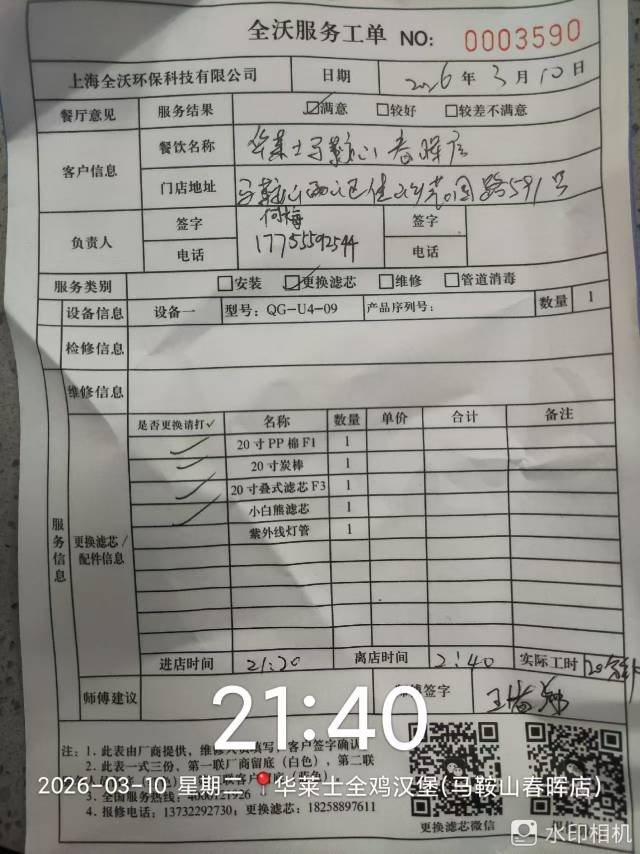 全沃服务工单 NO: 0003590
上海全沃环保科技有限公司 日期 2026年3月10日
餐厅意见 服务结果 ☑满意 □较好 □较差不满意
客户信息 餐饮名称 华莱士马鞍山春晖店
门店地址 马鞍山 路591号
负责人 签字 何梅 签字
电话 17755592544 电话
服务类别 □安装 ☑更换滤芯 □维修 □管道消毒
设备信息 设备一 型号: QG-U4-09 产品序列号: 数量 1
检修信息
维修信息
服务信息
更换滤芯/配件信息
是否更换请打✓ 名称 数量 单价 合计 备注
✓ 20寸PP棉F1 1
✓ 20寸炭棒 1
✓ 20寸叠式滤芯F3 1
✓ 小白熊滤芯 1
紫外线灯管 1
进店时间 21:20 离店时间 2:40 实际工时 20
师傅建议 签字
注: 1. 此表由厂商提供, 维修人员填写, 客户签字确认
2. 此表一式三份, 第一联厂商留底(白色), 第二联
3. 全国服务热线:
4. 报修电话: 13732292730; 更换滤芯: 18258897611
更换滤芯微信
21:40
2026-03-10 星期二 华莱士全鸡汉堡(马鞍山春晖店)
水印相机